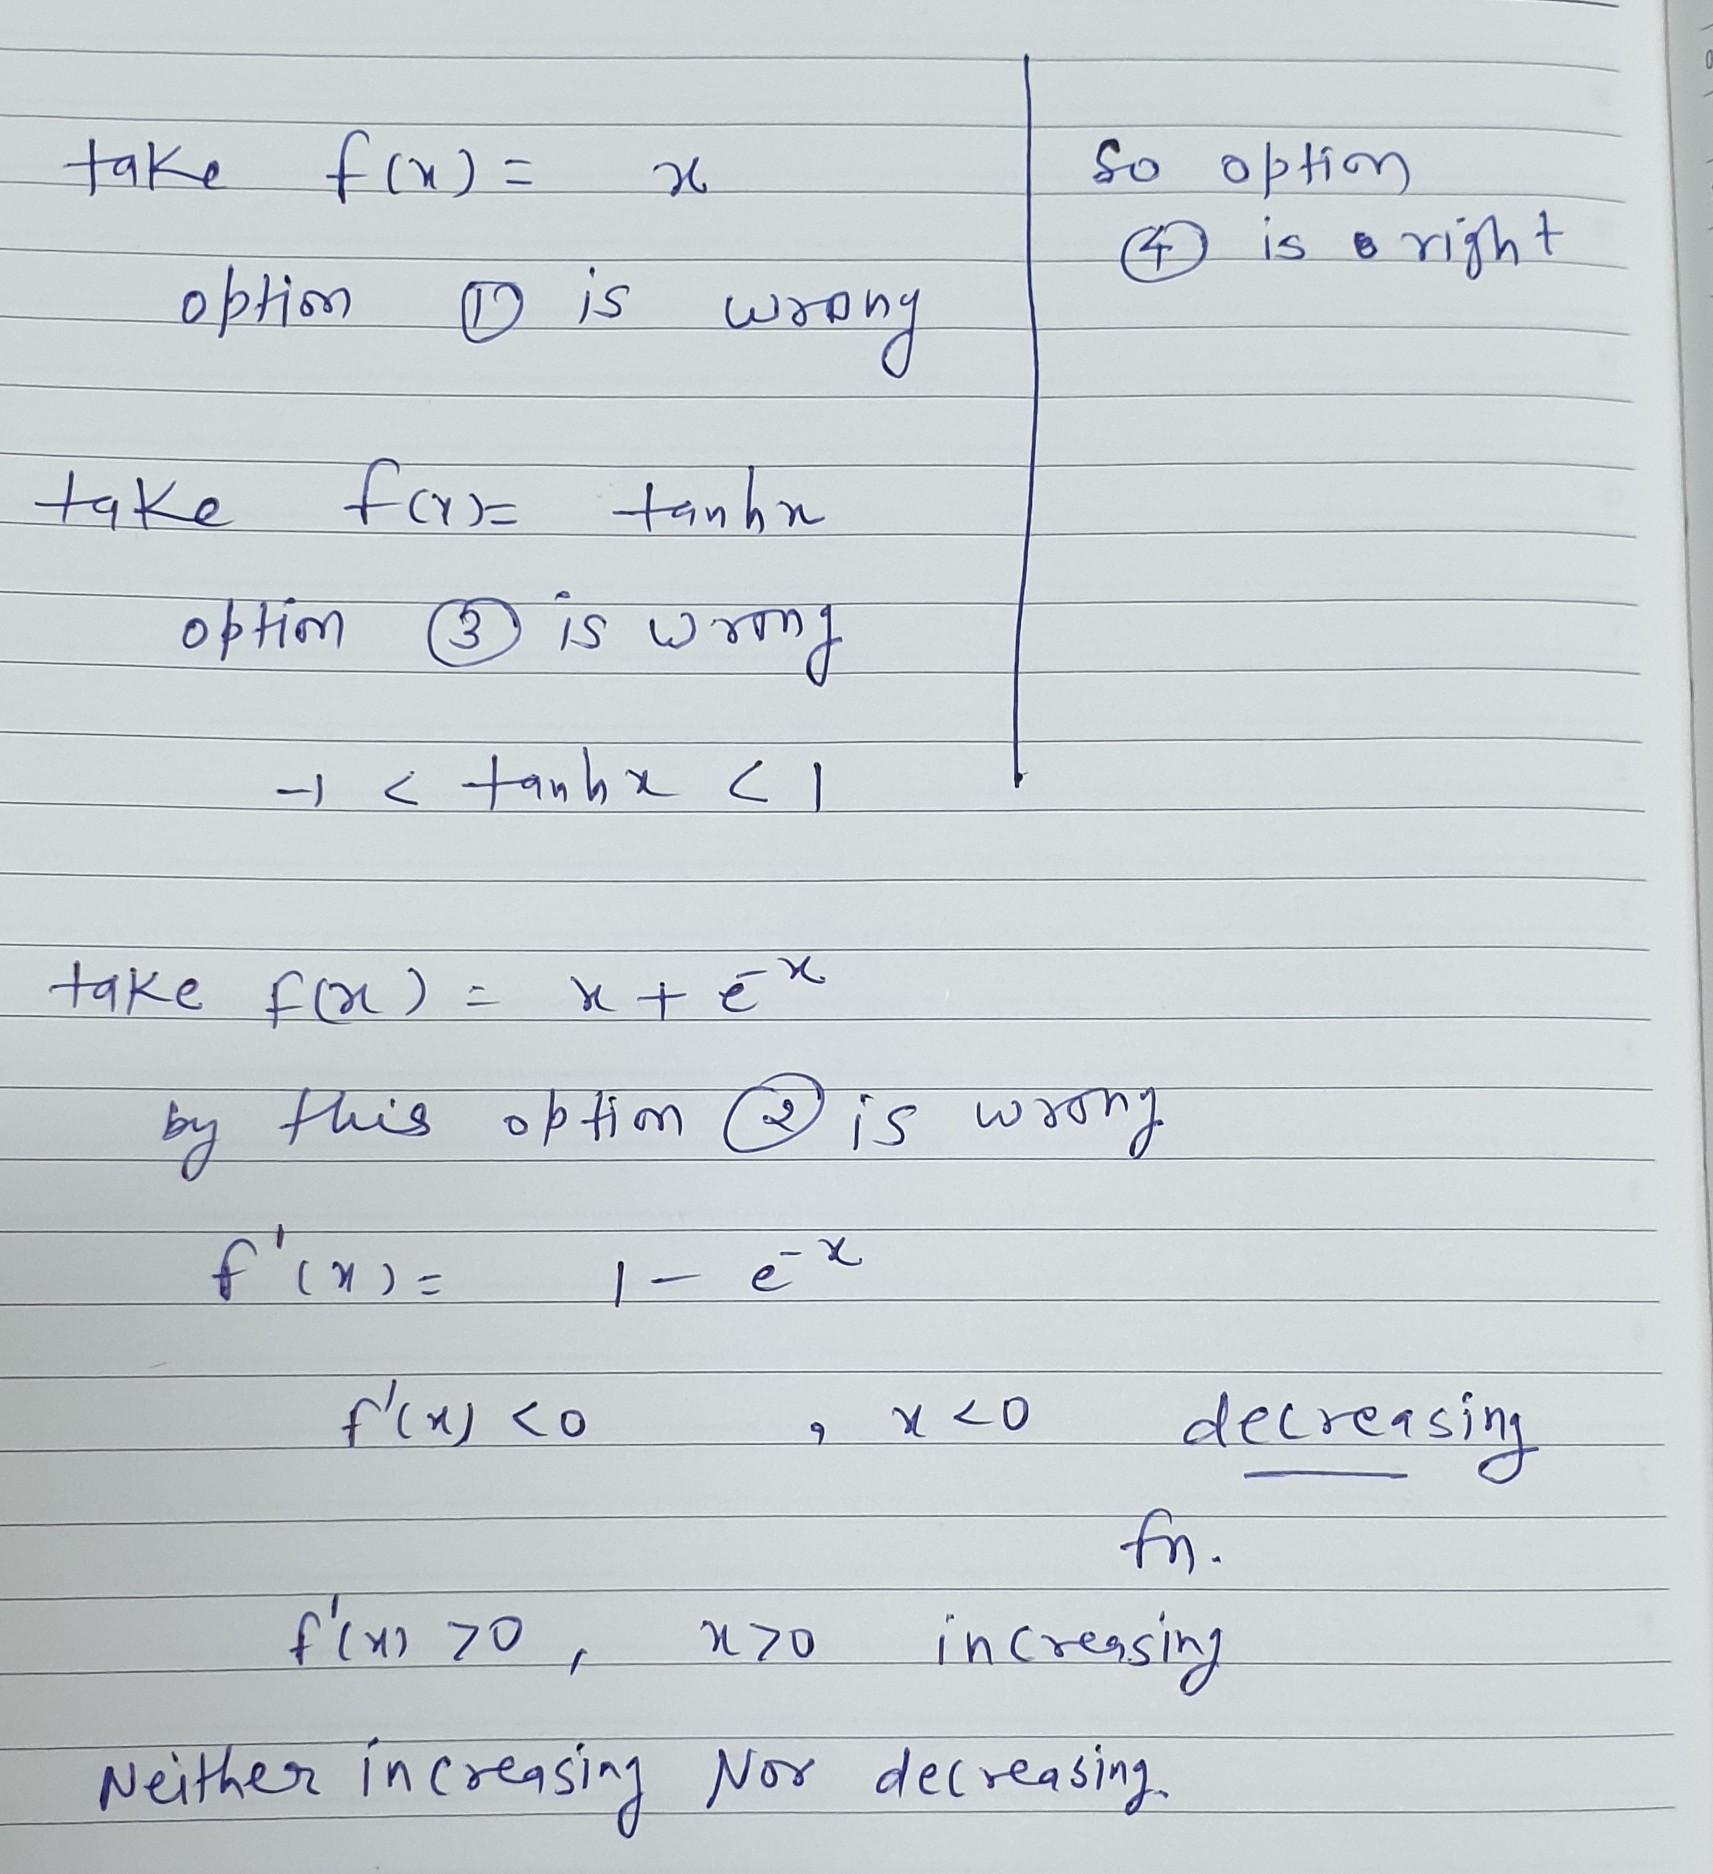 take f(x) = x
option ① is wrong
take f(x)= tanhx
option ③ is wrong
-1 < tanhx < 1
So option
④ is right
take f(x) = x + e^-x
by this option ② is wrong
f'(x)= 1 - e^-x
f'(x) <0 , x <0 decreasing
fn.
f'(x) >0 , x>0 increasing
Neither increasing Nor decreasing.